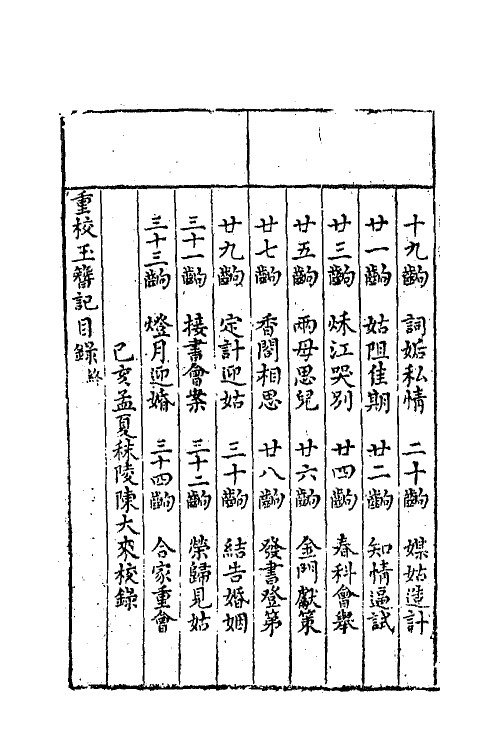 十九齣 詞姤私情 二十齣 媒姑造計
廿一齣 姑阻佳期 廿二齣 知情逼試
廿三齣 秌江哭别 廿四齣 春科會舉
廿五齣 兩母思兒 廿六齣 金門獻策
廿七齣 香閣相思 廿八齣 發書登第
廿九齣 定計迎姑 三十齣 結告婚姻
三十一齣 接書會案 三十二齣 榮歸見姑
三十三齣 燈月迎婚 三十四齣 合家重會
己亥孟夏秣陵陳大來校錄
重校玉簪記目錄終